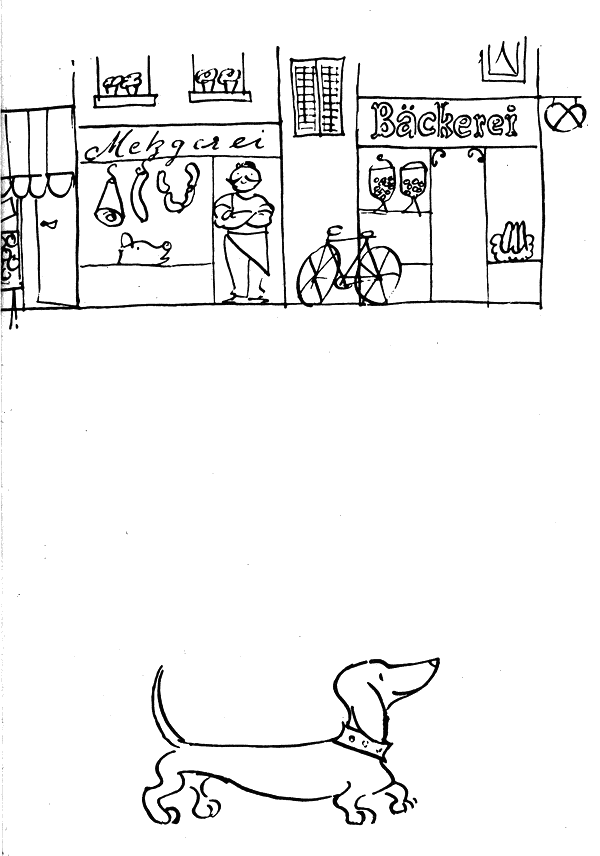 Metzgerei
Bäckerei